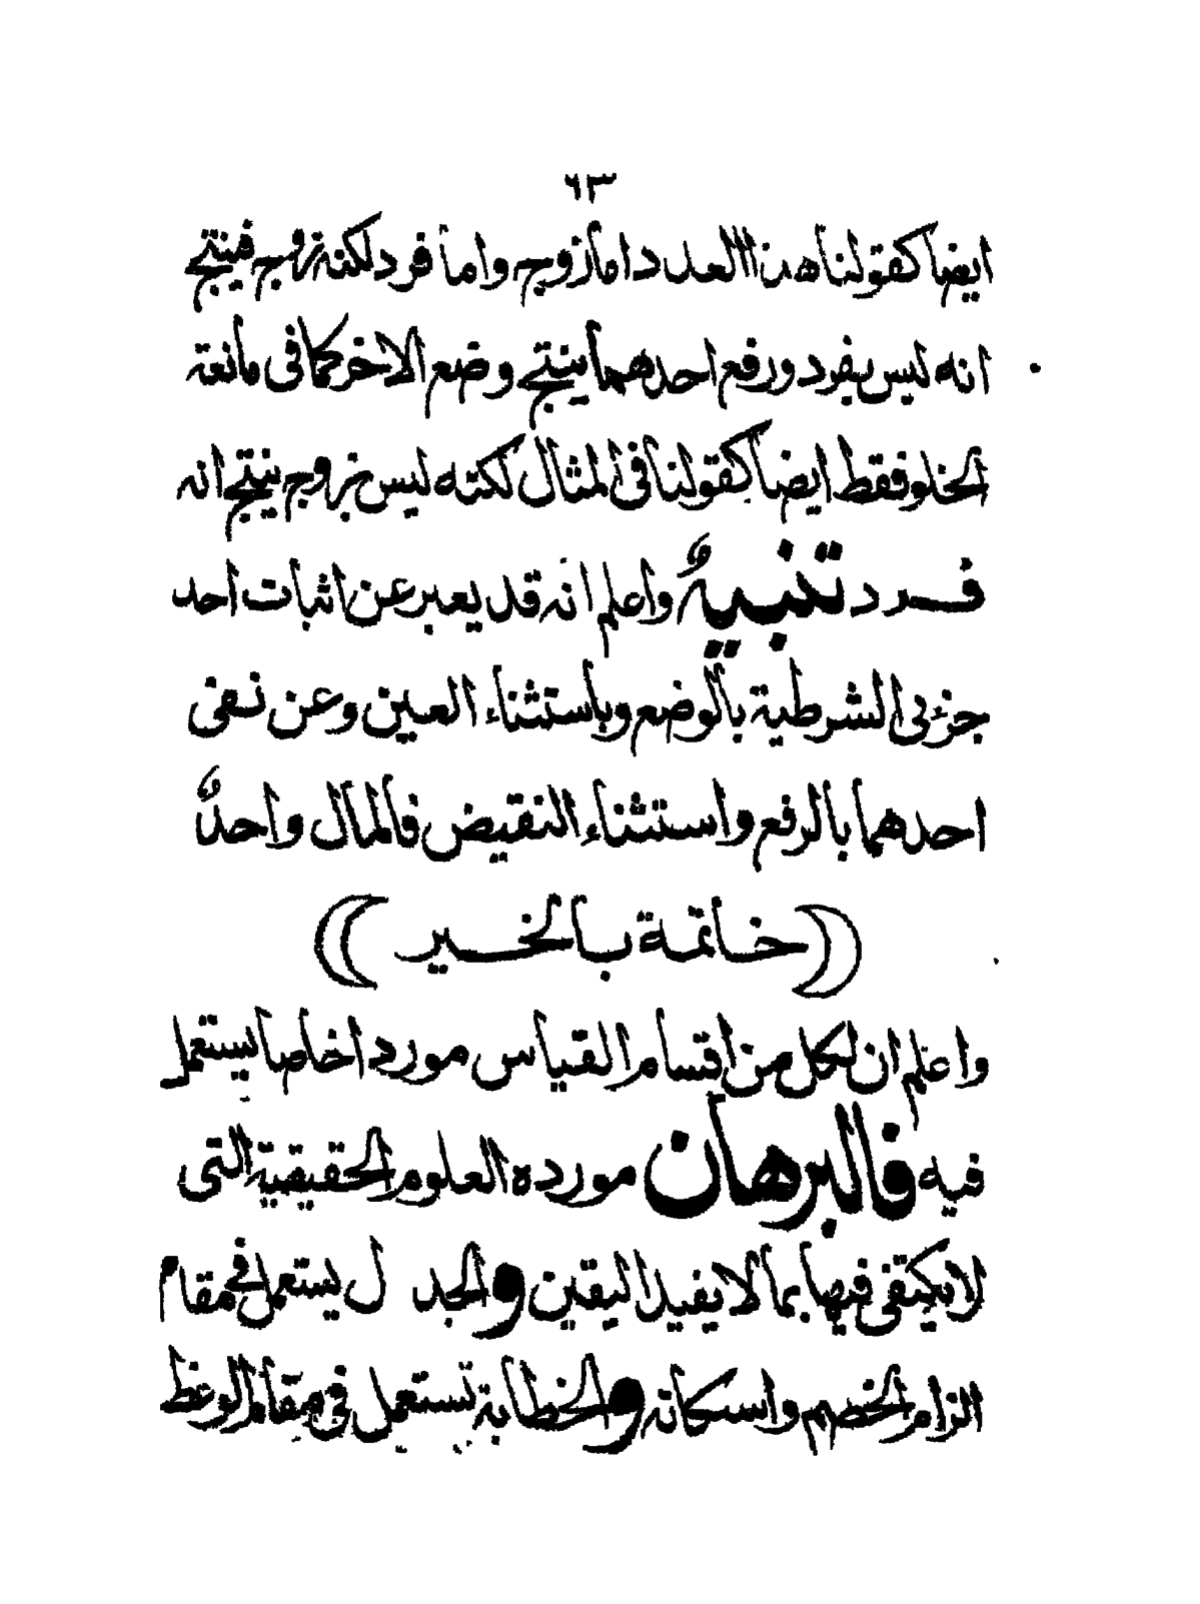 ٦٣
ايضا كقولنا هذا العدد اما زوج واما فرد لكنه زوج فينتج
انه ليس بفرد ورفع احدهما ينتج وضع الاخر كما فى مانعة
الخلو فقط ايضا كقولنا فى المثال لكنه ليس بزوج ينتج انه
فرد تنبيهٌ واعلم انه قد يعبر عن اثبات احد
جزئى الشرطية بالوضع وباستثناء العين وعن نفى
احدهما بالرفع واستثناء النقيض فالمال واحدٌ
(خاتمة بالخير)
واعلم ان لكل من اقسام القياس موردا خاصا يستعمل
فيه فالبرهان مورده العلوم الحقيقية التى
لا يكتفى فيها بما لا يفيد اليقين والجدل يستعمل فى مقام
الزام الخصم واسكاته والخطابة تستعمل فى مقام الوعظ